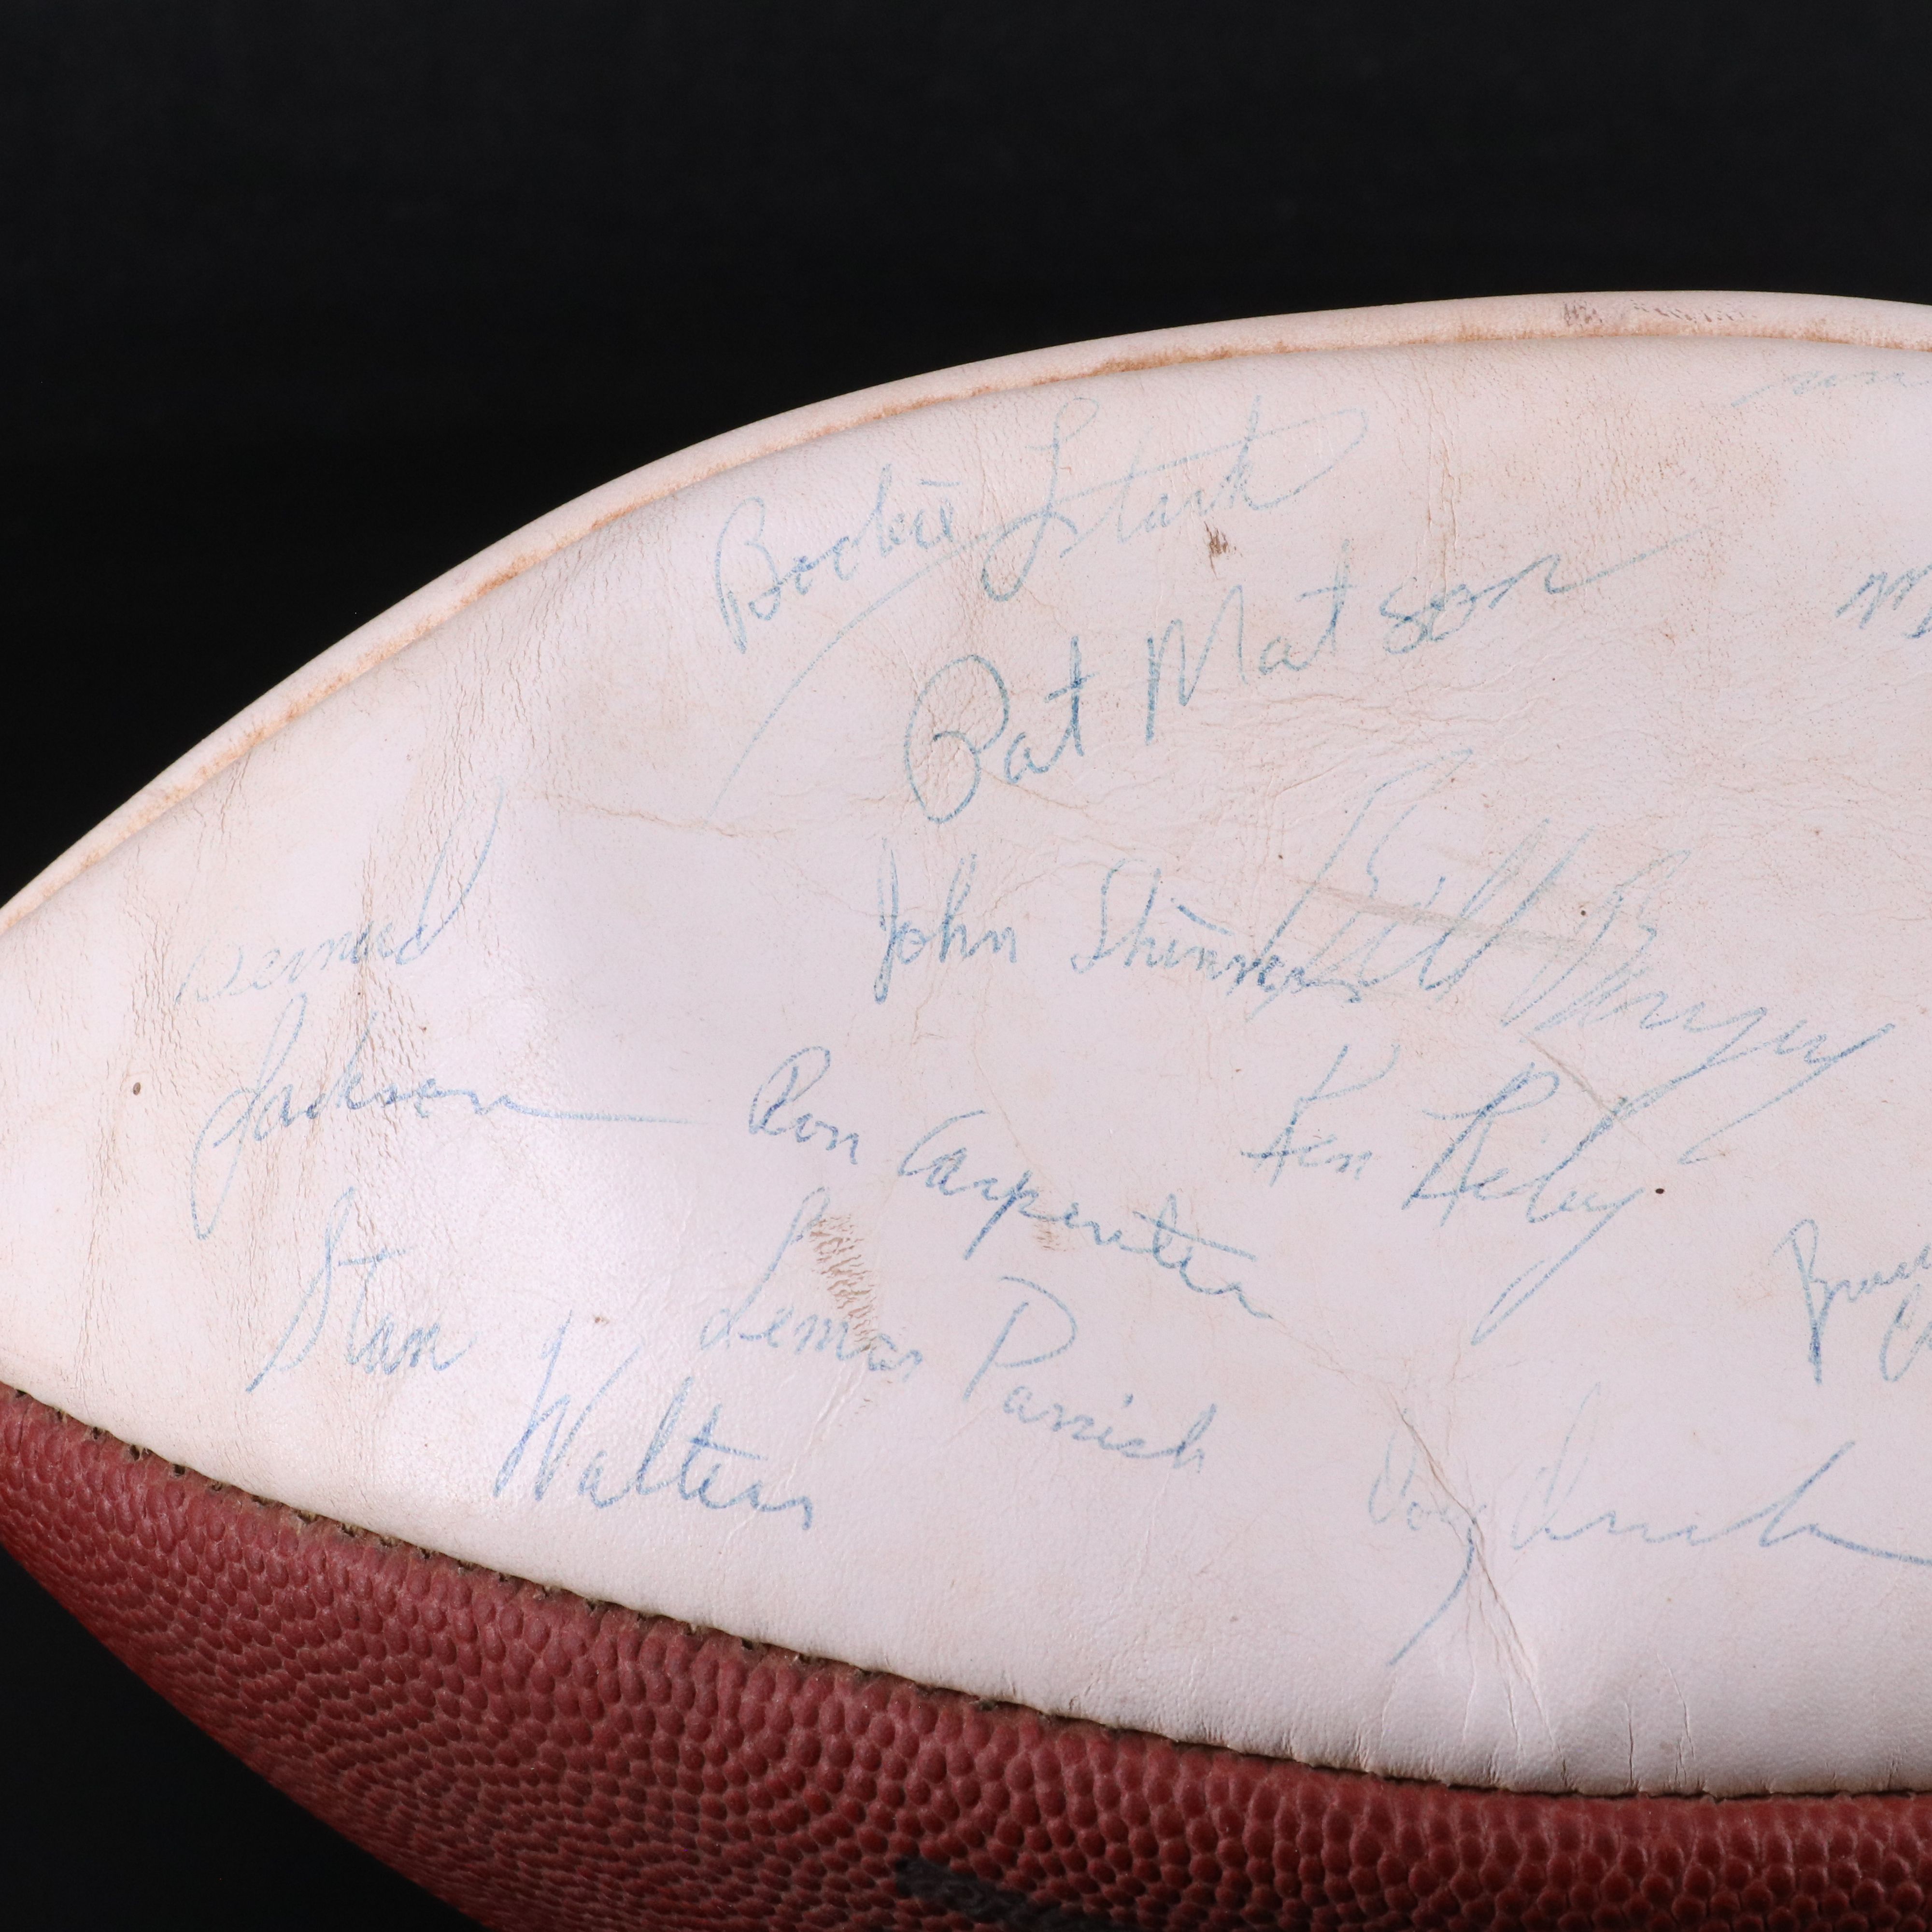 Boobie Stark
Pat Matson
Bernard
Jackson
John Shinners
Bill Bergey
Ron Carpenter
Ken Riley
Stan
Walters
Lemar Parrish